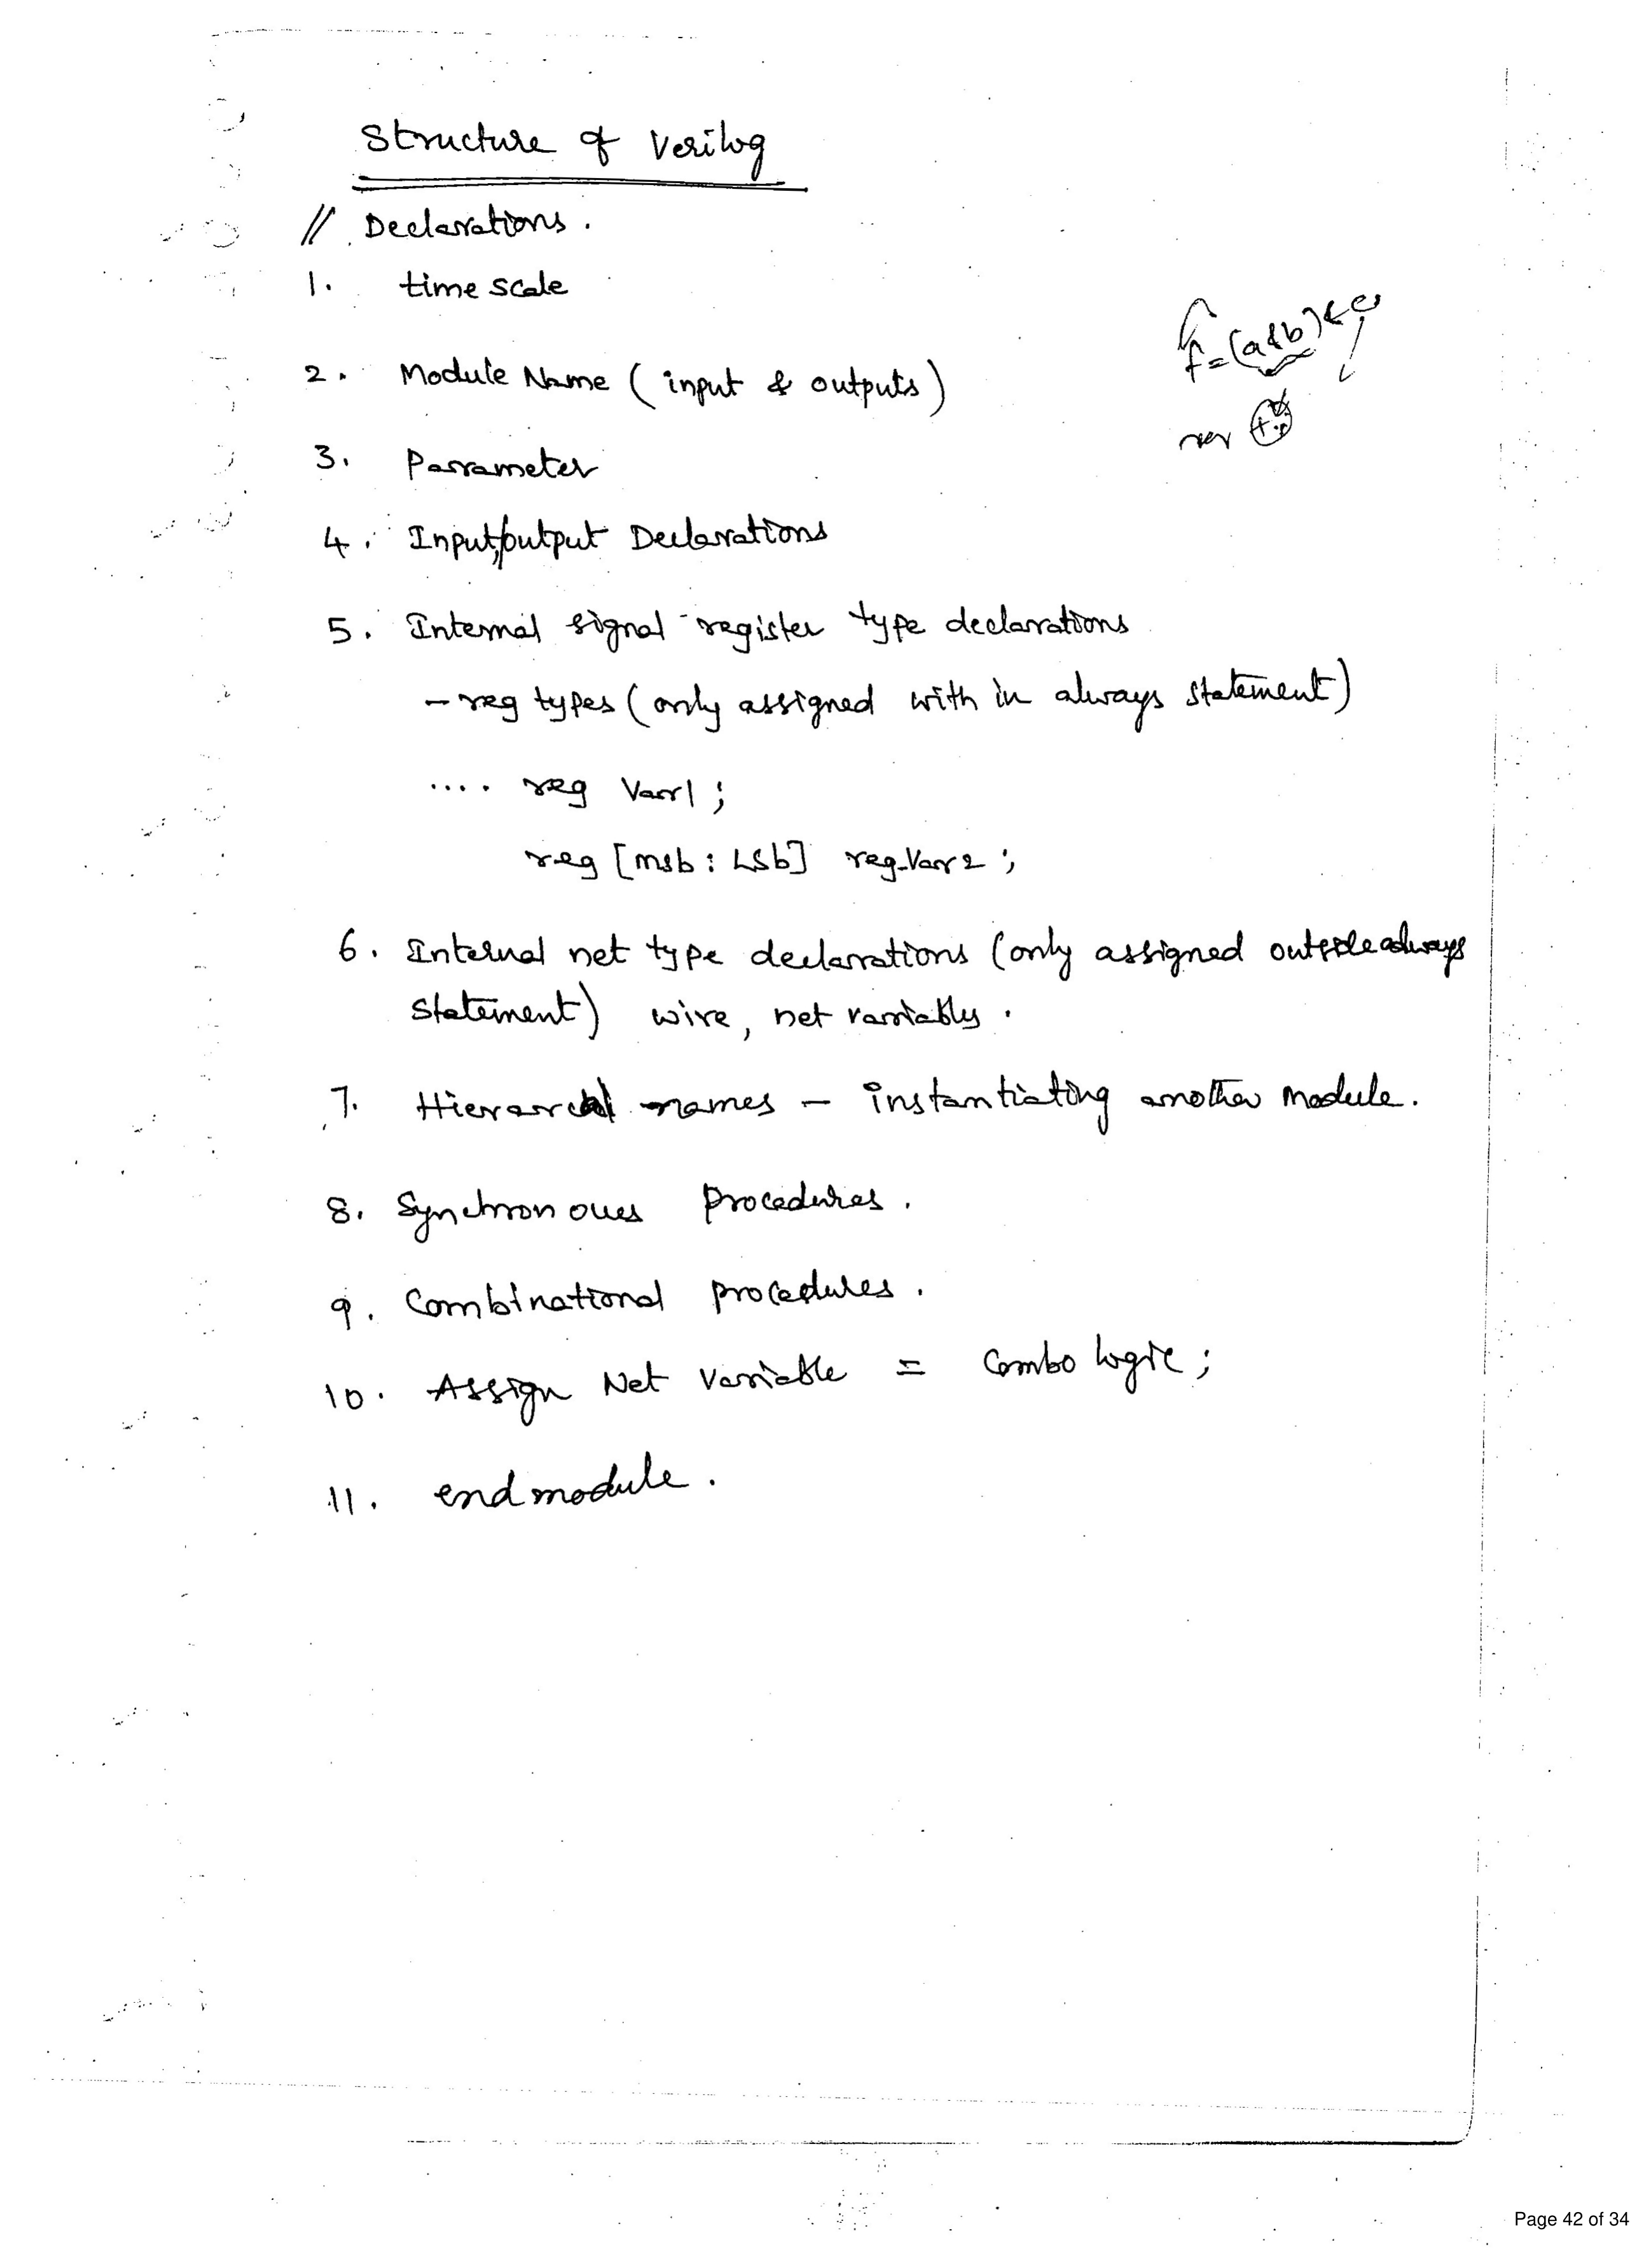 Structure of Verilog
// Declarations.
1. time scale
f=(a&b)
2. Module Name ( input & outputs )
3. Parameter
4. Input/output Declarations
5. Internal signal - register type declarations
- reg types ( only assigned with in always statement )
.... reg Var1 ;
reg [msb : Lsb] reg_Var 2 ;
6. Internal net type declarations (only assigned outside always
statement) wire, net variably .
7. Hierarchal names - instantiating another module.
8. Synchronous procedures.
9. Combinational procedures.
10. Assign Net variable = Combo logic ;
11. endmodule.
Page 42 of 34